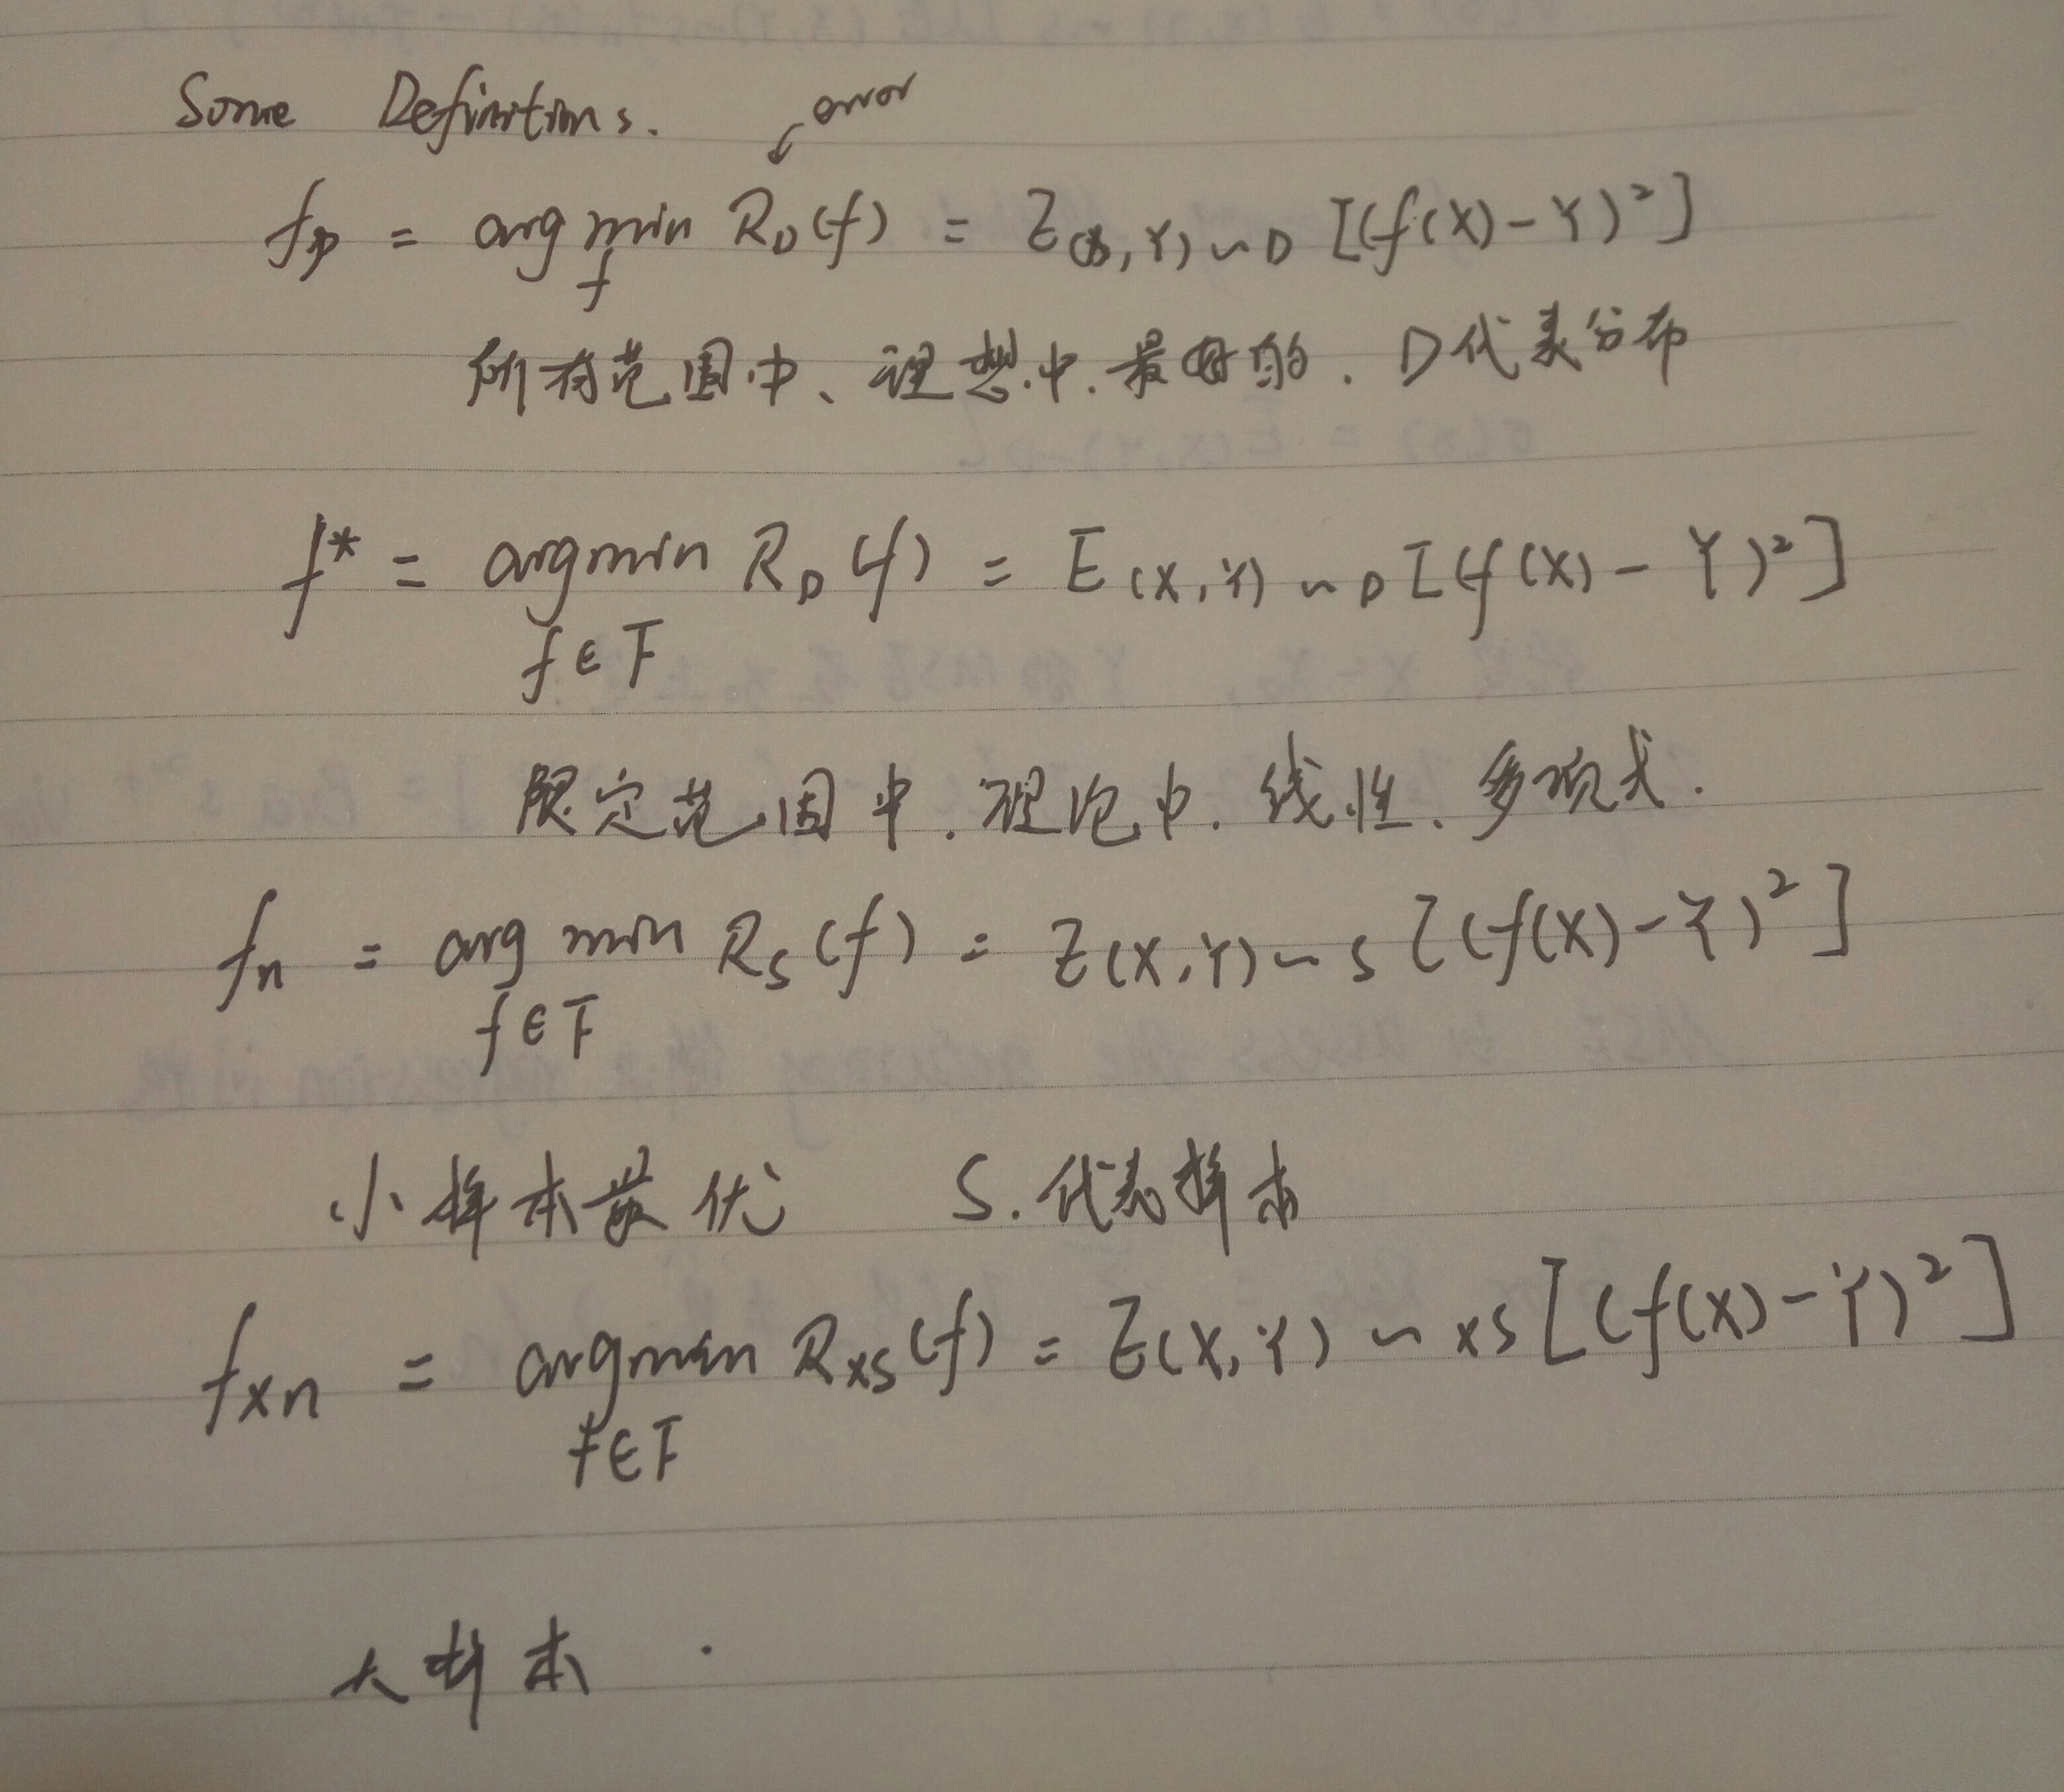 Some Definitions.
error
f_D = arg min R_D(f) = E(X,Y)~D [(f(X)-Y)²]
f
所有范围中、理想中.最好的. D代表分布
f* = argmin R_D(f) = E(X,Y)~D[(f(X)-Y)²]
f∈F
限定范围中.理论中.线性、多项式.
f_n = arg min R_S(f) = E(X,Y)~S [(f(X)-Y)²]
f∈F
小样本最优 S.代表样本
f_xn = argmin R_xS(f) = E(X,Y)~xS[(f(X)-Y)²]
f∈F
大样本.